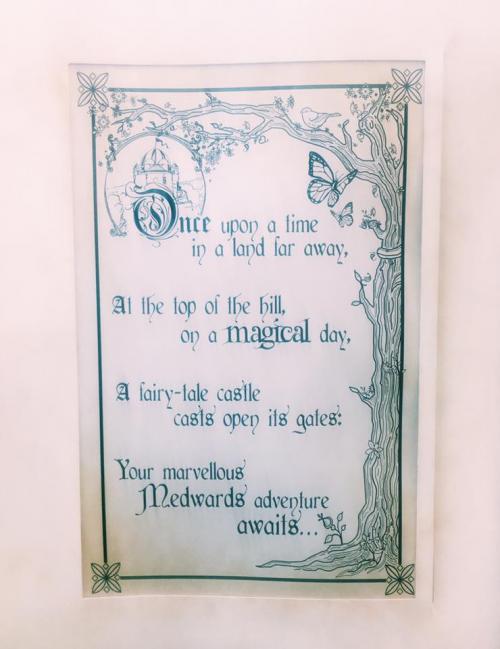 Once upon a time
in a land far away,
At the top of the hill,
on a magical day,
A fairy-tale castle
casts open its gates:
Your marvellous
Medwards adventure
awaits...